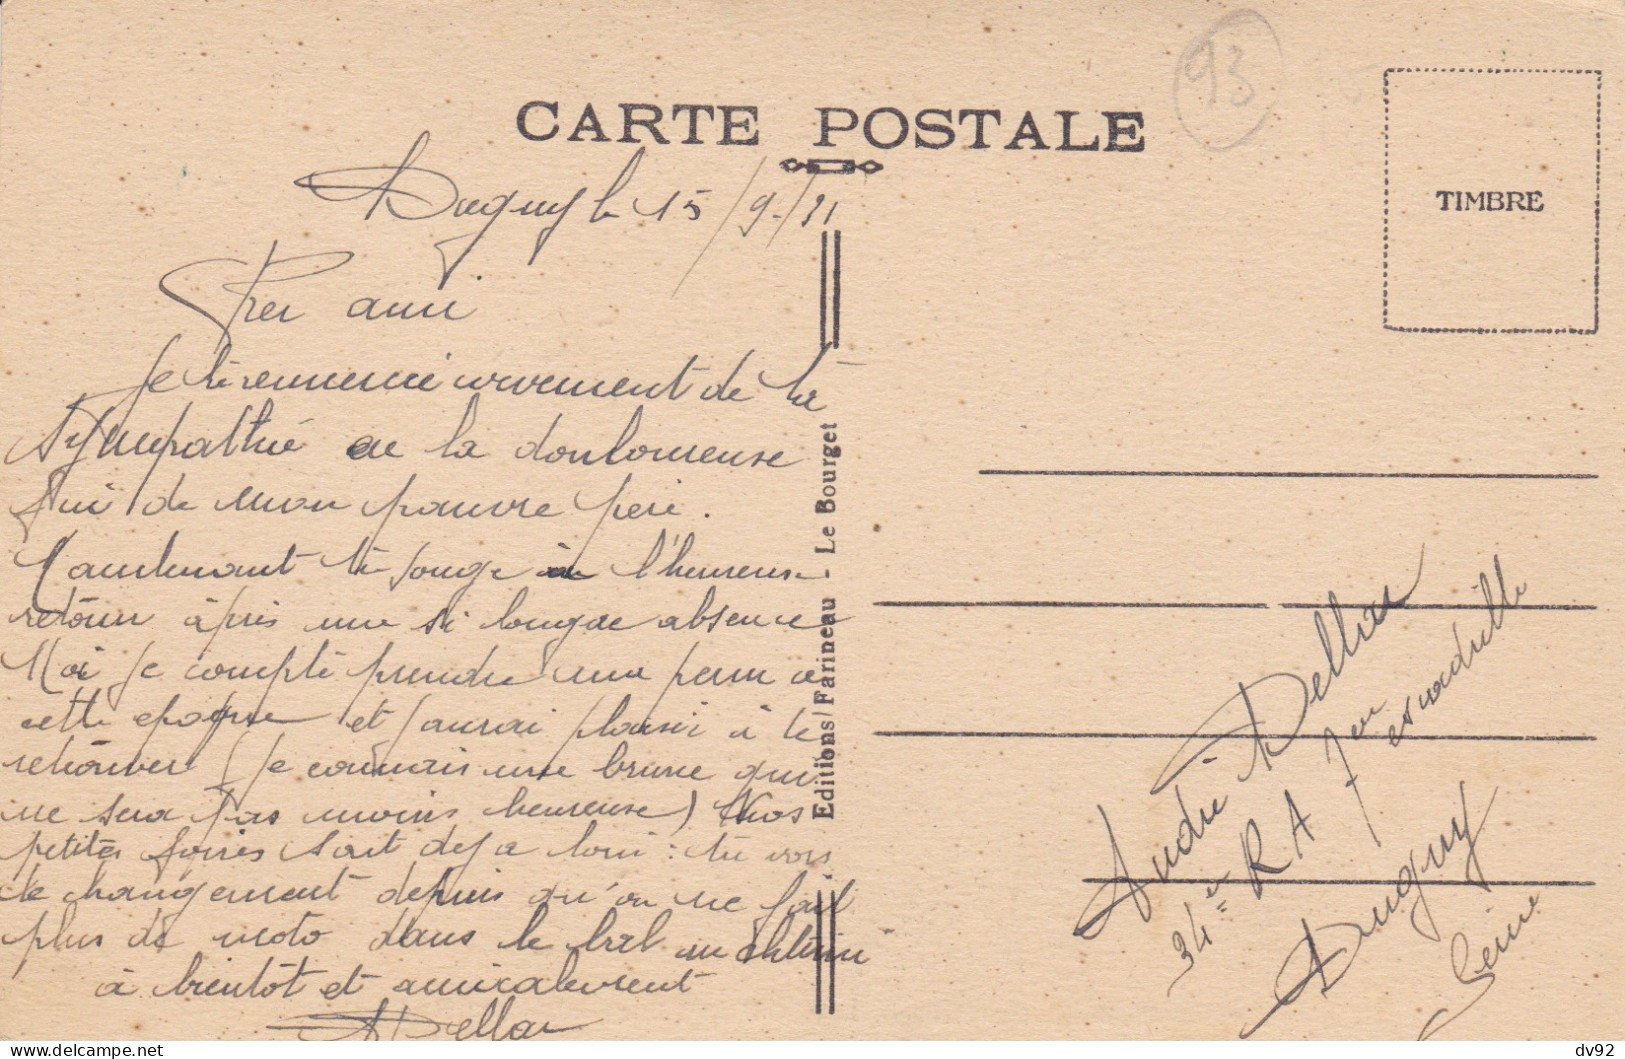 93
CARTE POSTALE
TIMBRE
Dugny le 15/9/31
Cher ami
Je te remercie vivement de ta
sympathie en la douloureuse
de mon pauvre père.
Maintenant je songe à l'heureux
retour après une si longue absence
Moi je compte prendre une perm a
cette epoque et j'aurai plaisir à te
retrouver (Je connais une brune qui
ne sera pas moins heureuse) Nos
petites foires sont deja loin : tu vois
le changement depuis qu'on ne fait
plus de moto dans le
à bientot et amicalement
Editions Farineau - Le Bourget
André
34e R A 7em escadrille
Dugny
Seine
dv92